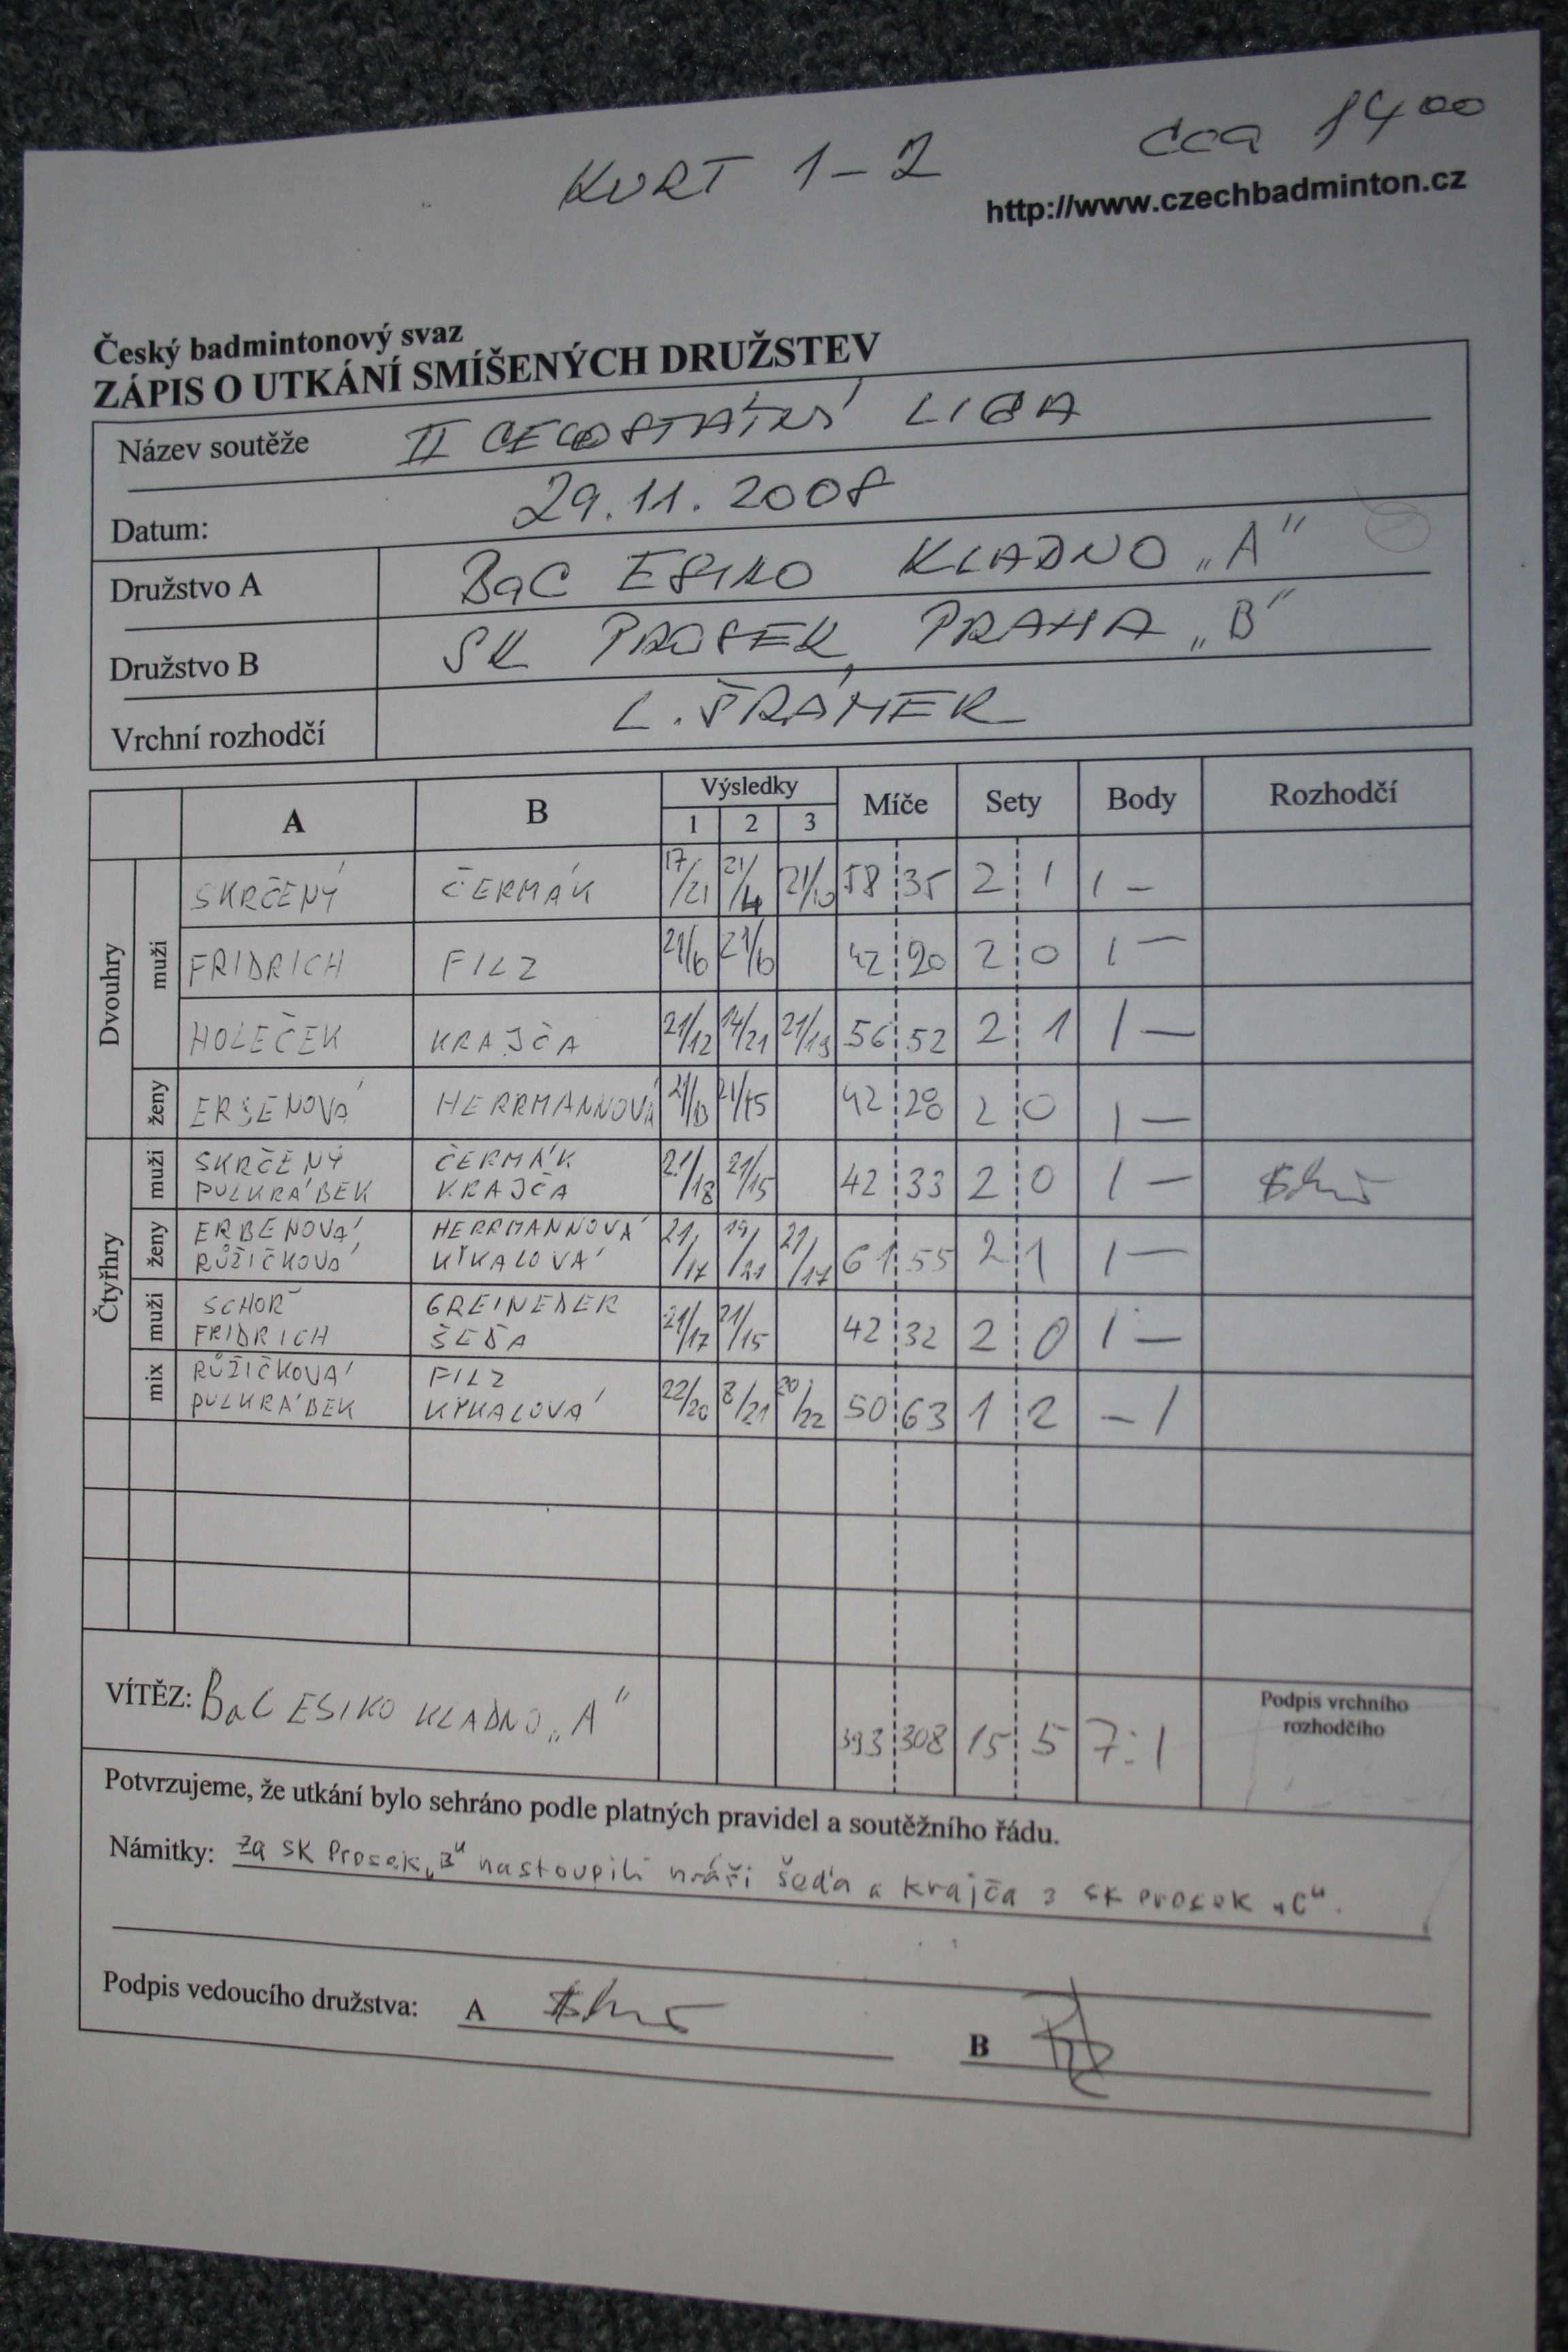 KURT 1-2 cca 14 00
http://www.czechbadminton.cz
Český badmintonový svaz
ZÁPIS O UTKÁNÍ SMÍŠENÝCH DRUŽSTEV
Název soutěže II CELOSTÁTNÍ LIGA
Datum: 29.11.2008
Družstvo A BaC ESIKO KLADNO „A"
Družstvo B SK PROSEK PRAHA „B"
Vrchní rozhodčí L. ŠRÁMEK
A B Výsledky 1 2 3 Míče Sety Body Rozhodčí
Dvouhry
muži
SKRČENÝ ČERMÁK 17/21 21/4 21/10 58 35 2 1 1 -
FRIDRICH FILZ 21/6 21/6 42 20 2 0 1 -
HOLEČEK KRAJČA 21/12 14/21 21/19 56 52 2 1 1 -
ženy ERBENOVÁ HERRMANNOVÁ 21/13 21/15 42 28 2 0 1 -
Čtyřhry
muži SKRČENÝ ČERMÁK 21/18 21/15 42 33 2 0 1 -
PULKRÁBEK KRAJČA
ženy ERBENOVÁ HERRMANNOVÁ 21/17 19/21 21/17 61 55 2 1 1 -
RŮŽIČKOVÁ KYKALOVÁ
muži SCHOŘ GREINEDER 21/17 21/15 42 32 2 0 1 -
FRIDRICH ŠEĎA
mix RŮŽIČKOVÁ FILZ 22/20 8/21 20/22 50 63 1 2 - 1
PULKRÁBEK KYKALOVÁ
VÍTĚZ: BaC ESIKO KLADNO „A" 393 308 15 5 7:1
Podpis vrchního
rozhodčího
Potvrzujeme, že utkání bylo sehráno podle platných pravidel a soutěžního řádu.
Námitky: za SK Prosek „B" nastoupili hráči šeďa a krajča z SK Prosek „C".
Podpis vedoucího družstva: A B